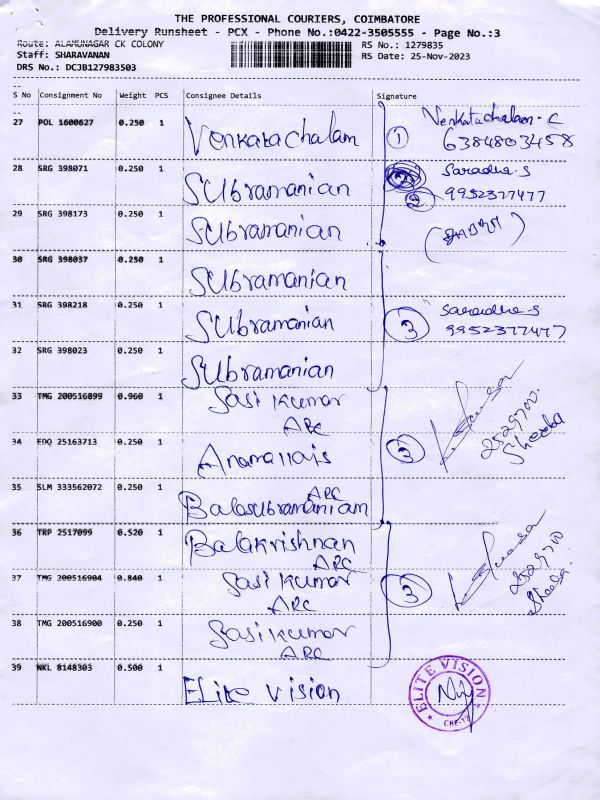 THE PROFESSIONAL COURIERS, COIMBATORE
Delivery Runsheet - PCX - Phone No.:0422-3505555 - Page No.:3
Route: ALAMUNAGAR CK COLONY
RS No.: 1279835
Staff: SHARAVANAN
RS Date: 25-Nov-2023
DRS No.: DCJB127983503
S No Consignment No Weight PCS Consignee Details Signature
27 POL 1600627 0.250 1 Venkatachalam 1 Venkatachalam - C
6384803458
28 SRG 398071 0.250 1 Subramanian 2 Saradha.S
9952377477
29 SRG 398173 0.250 1 Subramanian
30 SRG 398037 0.250 1 Subramanian
31 SRG 398218 0.250 1 Subramanian 3 Saradha S
9952377477
32 SRG 398023 0.250 1 Subramanian
33 TMG 200516899 0.960 1 Sasi kumar
ARC
34 EDQ 25163713 0.250 1 3 2529700.
Sheeba
35 SLM 333562072 0.250 1 ARC
Balasubramaniam
36 TRP 2517099 0.520 1 Balakrishnan
ARC
37 TMG 200516904 0.840 1 Sasi kumar 3 2529700
ARC Sheeba.
38 TMG 200516900 0.250 1 Sasi kumar
ARC
39 NKL 8148303 0.500 1 Elite Vision ELITE VISION